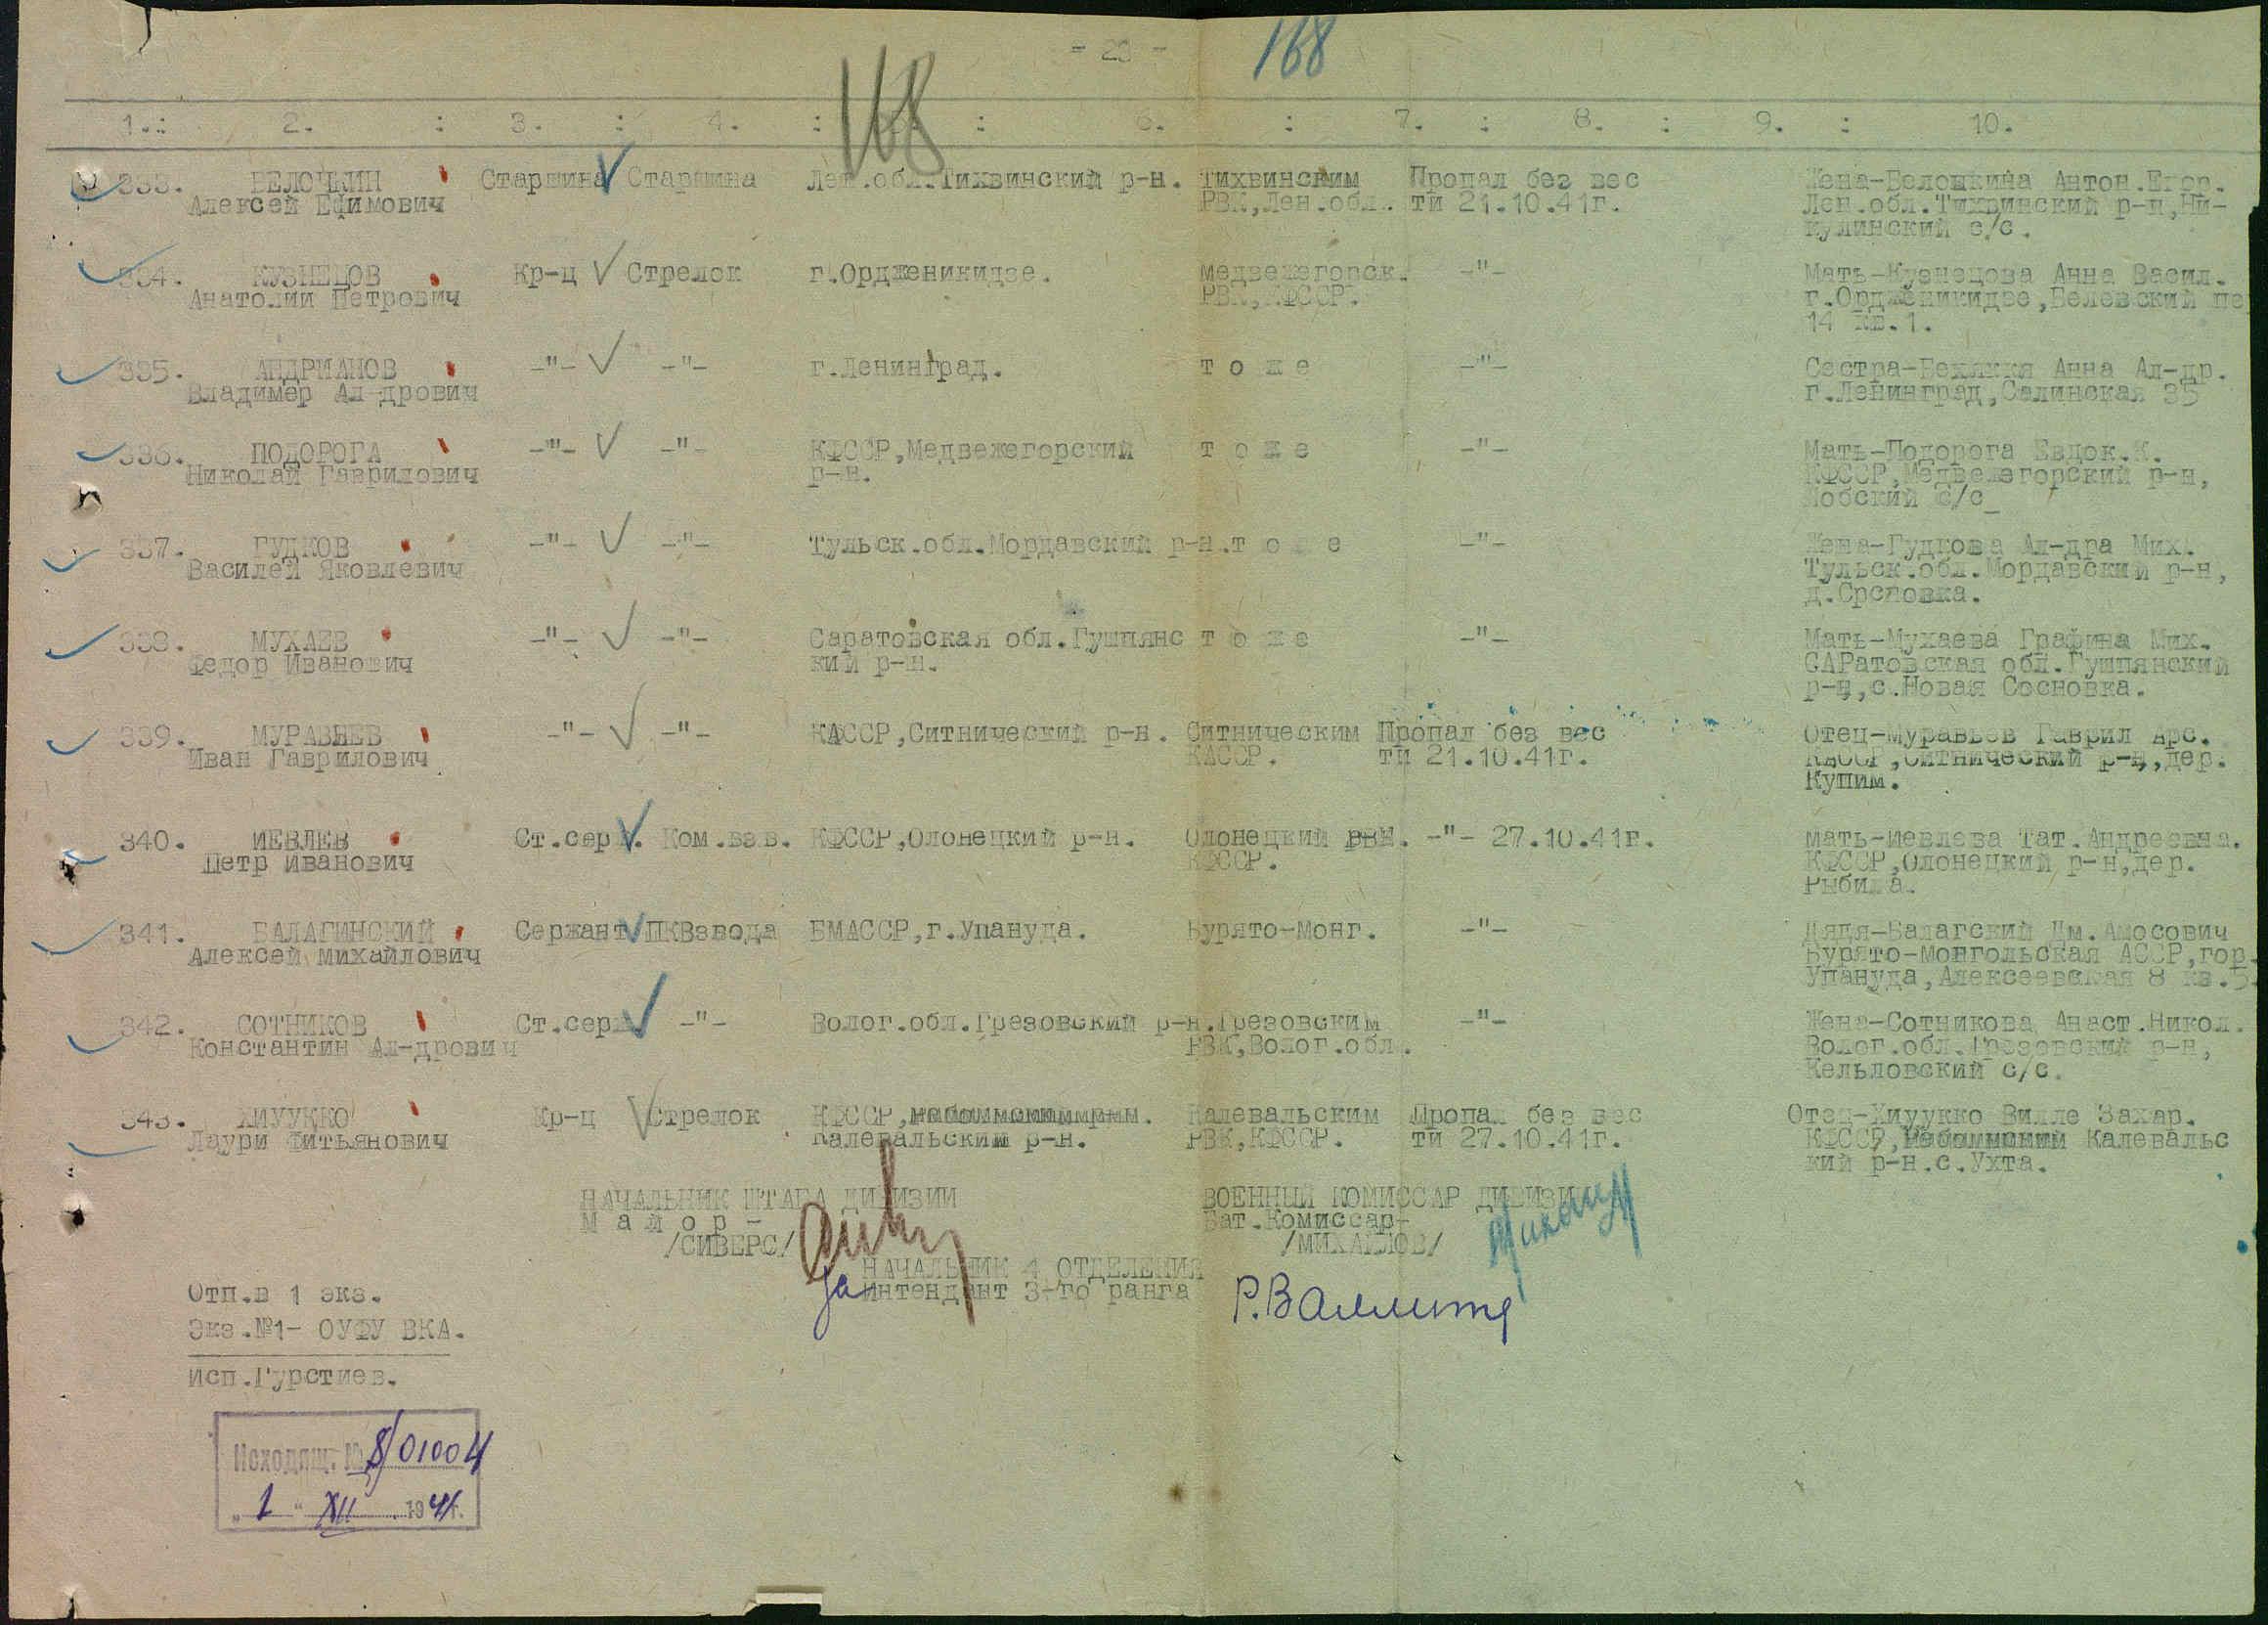 - 23 -
168
168
1. : 2. : 3. : 4. : : 6. : 7. : 8. : 9. : 10.
333. БЕЛОШКИН Старшина Старшина Лен.обл.Тихвинский р-н. Тихвинским Пропал без вес Жена-Белошкина Антон.Егор.
Алексей Ефимович РВК,Лен.обл. ти 21.10.41г. Лен.обл.Тихвинский р-н,Ни-
кулинский с/с.
334. КУЗНЕЦОВ Кр-ц Стрелок г.Орджекикидзе. Медвежегорск. -"- Мать-Кузнецова Анна Васил.
Анатолий Петрович РВК,КФССР. г.Орджекикидзе,Белевский пе
14 кв.1.
335. АНДРИАНОВ -"- -"- г.Ленинград. т о ж е -"- Сестра- Анна Ал-др.
Владимер Ал-дрович г.Ленинград,Салинская 35
336. ПОДОРОГА -"- -"- КФССР,Медвежегорский т о ж е -"- Мать-Подорога Евдок.К.
Николай Гаврилович р-н. КФССР,Медвежегорский р-н,
Лобский с/с_
337. ГУДКОВ -"- -"- Тульск.обл.Мордавский р-н.т о ж е -"- Жена-Гудкова Ал-дра Мих.
Василей Яковлевич Тульск.обл.Мордавский р-н,
д.
338. МУХАЕВ -"- -"- Саратовская обл.Гушпянс т о ж е -"- Мать-Мухаева Графина Мих.
Федор Иванович кий р-н. САРатовская обл.Гушпянский
р-н,с.Новая Сосновка.
339. МУРАВЬЕВ -"- -"- КАССР,Ситнический р-н. Ситническим Пропал без вес Отец-Муравьев Гаврил Арс.
Иван Гаврилович КАССР. ти 21.10.41г. КАССР,Ситнический р-н,дер.
Купим.
340. ИЕВЛЕВ Ст.серж. Ком.взв. КФССР,Олонецкий р-н. Олонецкий РВК. -"- 27.10.41г. Мать-Иевлева Тат.Андреевна.
Петр Иванович КФССР. КФССР,Олонецкий р-н,дер.
341. БАЛАГИНСКИЙ Сержант ПКВзвода БМАССР,г.Упануда. Бурято-Монг. -"- Дядя-Балагский Дм.Амосович
Алексей Михайлович Бурято-Монгольская АССР,гор.
Упануда,Алексеевская 8 кв.5.
342. СОТНИКОВ Ст.серж -"- Волог.обл.Грезовский р-н.Грезовским -"- Жена-Сотникова Анаст.Никол.
Константин Ал-дрович РВК,Волог.обл. Волог.обл.Грезовский р-н,
Кельловский с/с.
343. ХИУУККО Кр-ц Стрелок КФССР, Калевальским Пропал без вес Отец-Хиуукко Вилле Захар.
Лаури Фитьянович Калевальский р-н. РВК,КФССР. ти 27.10.41г. КФССР, Калевальс
кий р-н.с.Ухта.
НАЧАЛЬНИК ШТАБА ДИВИЗИИ ВОЕННЫЙ КОМИССАР ДИВИЗИИ
М а й о р - Бат.Комиссар-
/СИВЕРС/ /МИХАЙЛОВ/
НАЧАЛЬНИК 4 ОТДЕЛЕНИЯ
за Интендант 3-го ранга
Отп.в 1 экз.
Экз.№1- ОУФУ ВКА.
Исп.Гурстиев.
Исходящ. № 8/01004
„ 1 “ XII 1941г.